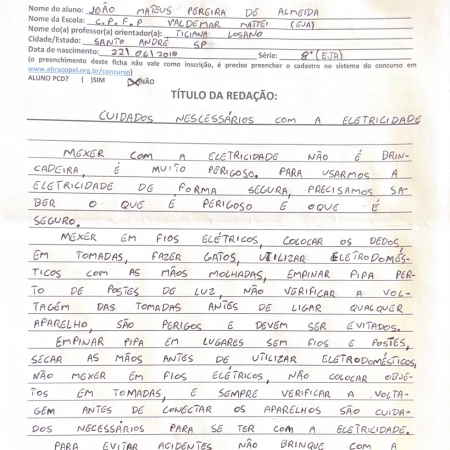 Nome do aluno: JOÃO MATEUS PEREIRA DE ALMEIDA
Nome da Escola: C.P.F.P VALDEMAR MATTEI (EJA)
Nome do(a) professor(a) orientador(a): TICIANA LOSANO
Cidade/Estado: SANTO ANDRÉ SP
Data de nascimento: 22/06/2010 Série: 8º (EJA)
(o preenchimento desta ficha não vale como inscrição, é preciso preencher o cadastro no sistema do concurso em
www.abracopel.org.br/concurso)
ALUNO PCD? ( )SIM (X)NÃO
TÍTULO DA REDAÇÃO:
CUIDADOS NESCESSÁRIOS COM A ELETRICIDADE
MEXER COM A ELETRICIDADE NÃO É BRIN-
CADEIRA, É MUITO PERIGOSO. PARA USARMOS A
ELETRICIDADE DE FORMA SEGURA, PRECISAMOS SA-
BER O QUE É PERIGOSO E OQUE É
SEGURO.
MEXER EM FIOS ELÉTRICOS, COLOCAR OS DEDOS
EM TOMADAS, FAZER GATOS, UTILIZAR ELETRODOMÉS-
TICOS COM AS MÃOS MOLHADAS, EMPINAR PIPA PER-
TO DE POSTES DE LUZ, NÃO VERIFICAR A VOL-
TAGEM DAS TOMADAS ANTES DE LIGAR QUALQUER
APARELHO, SÃO PERIGOS E DEVEM SER EVITADOS.
EMPINAR PIPA EM LUGARES SEM FIOS E POSTES,
SECAR AS MÃOS ANTES DE UTILIZAR ELETRODOMÉSTICOS,
NÃO MEXER EM FIOS ELÉTRICOS, NÃO COLOCAR OBJE-
TOS EM TOMADAS, E SEMPRE VERIFICAR A VOLTA-
GEM ANTES DE CONECTAR OS APARELHOS SÃO CUIDA-
DOS NECESSÁRIOS PARA SE TER COM A ELETRICIDADE.
PARA EVITAR ACIDENTES NÃO BRINQUE COM A